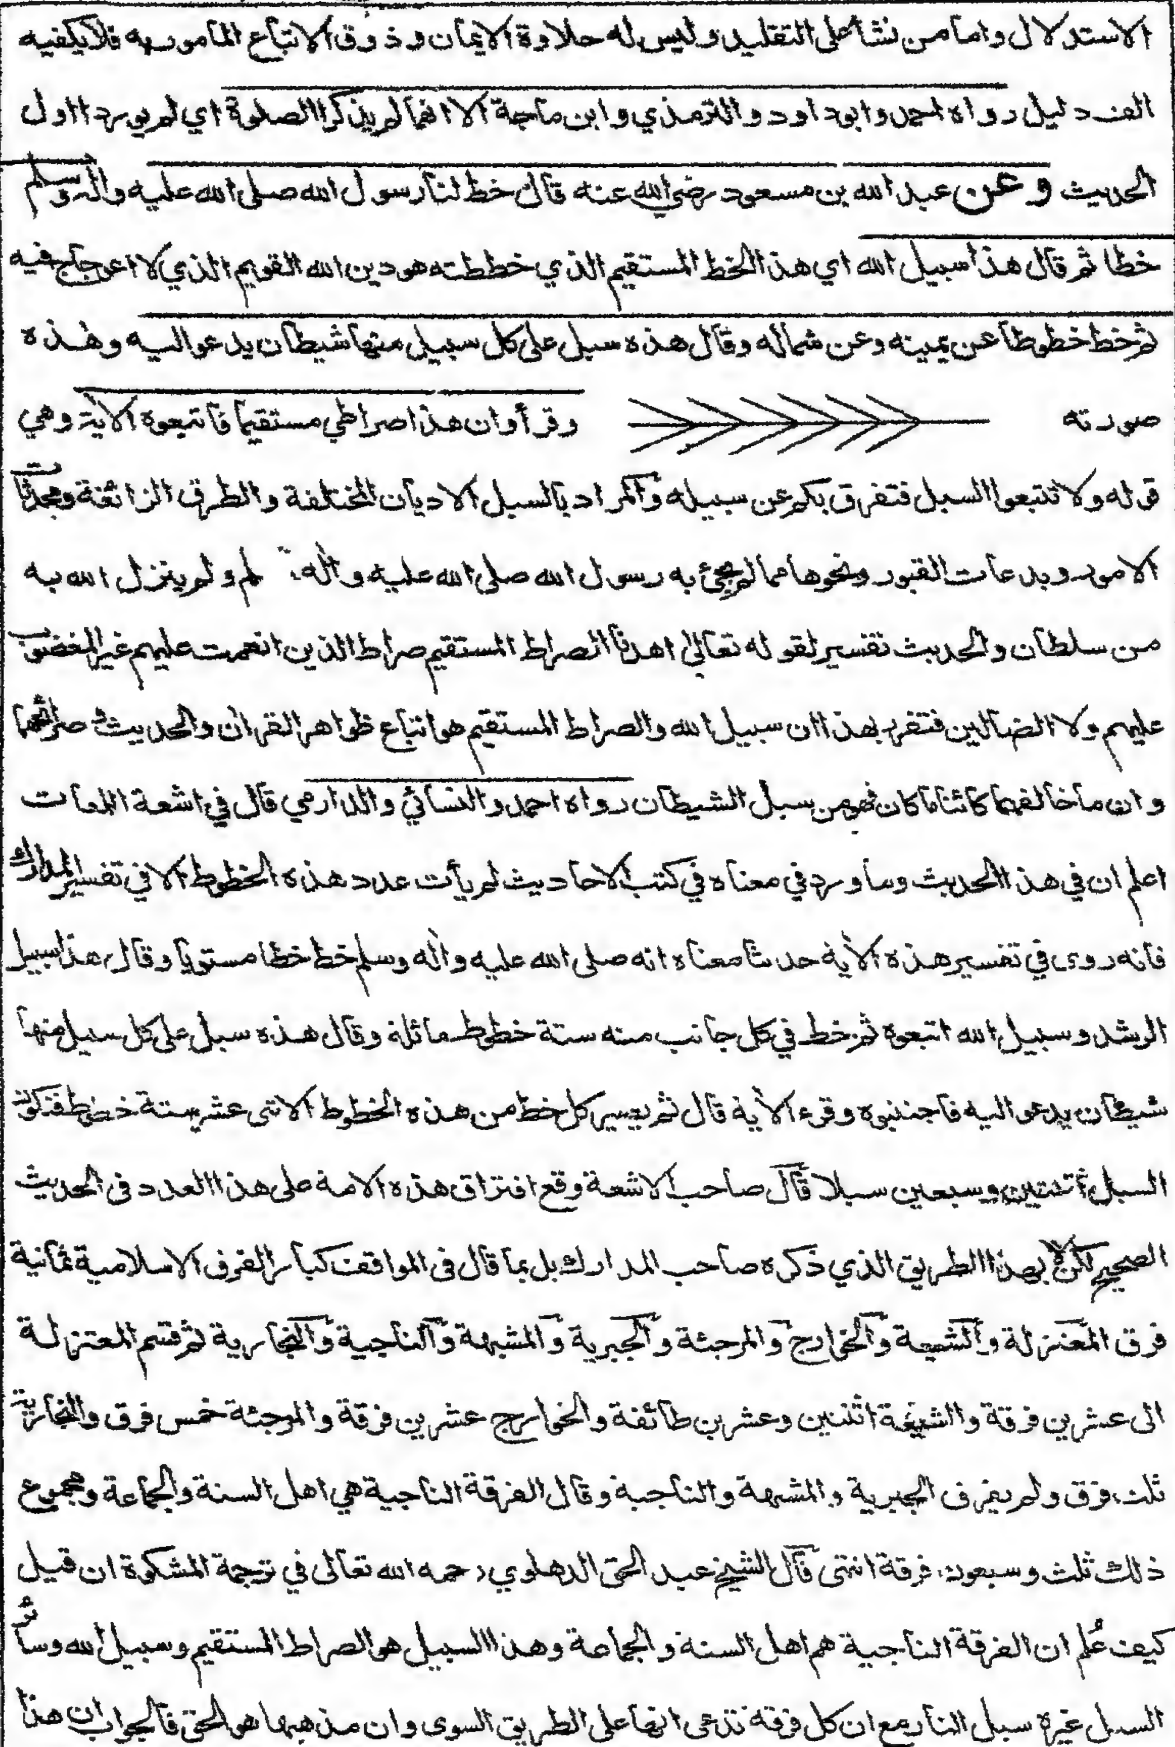 الاستدلال واما من نشأ على التقليد وليس له حلاوة الايمان وذوق الاتباع المامور به فلا يكفيه
الف دليل رواه احمد وابوداود والترمذي وابن ماجة الا انهما لم يذكرا الصلوة اي لم يوردا اول
الحديث وعن عبد الله بن مسعود رضي الله عنه قال خط لنا رسول الله صلى الله عليه واله وسلم
خطا ثم قال هذا سبيل الله اي هذا الخط المستقيم الذي خططته هو دين الله القويم الذي لا اعوجاج فيه
ثم خط خطوطا عن يمينه وعن شماله وقال هذه سبل على كل سبيل منها شيطان يدعو اليه وهذه
صورته وقرأ وان هذا صراطي مستقيما فاتبعوه الاية وهي
قوله ولا تتبعوا السبل فتفرق بكم عن سبيله والمراد بالسبل الاديان المختلفة والطرق الزائغة ومحدثات
الامور وبدعات القبور ونحوها مما لم يجئ به رسول الله صلى الله عليه واله لم ولم ينزل الله به
من سلطان والحديث تفسير لقوله تعالى اهدنا الصراط المستقيم صراط الذين انعمت عليهم غير المغضوب
عليهم ولا الضالين فتقرر بهذا ان سبيل الله والصراط المستقيم هو اتباع ظواهر القران والحديث وصرائحهما
وان ما خالفهما كائنا ما كان فهو من سبل الشيطان رواه احمد والنسائي والدارمي قال في اشعة اللمعات
اعلم ان في هذا الحديث وما ورد في معناه في كتب الاحاديث لم يأت عدد هذه الخطوط الا في تفسير المدارك
فانه روى في تفسير هذه الأية حديثا معناه انه صلى الله عليه واله وسلم خط خطا مستويا وقال هذا سبيل
الرشد وسبيل الله اتبعوه ثم خط في كل جانب منه ستة خطوط مائلة وقال هذه سبل على كل سبيل منها
شيطان يدعو اليه فاجتنبوه وقرء الأية قال ثم يصير كل خط من هذه الخطوط الاثنى عشر ستة خطوط فتكون
السبل اثنتين وسبعين سبيلا قال صاحب الاشعة وقع افتراق هذه الامة على هذا العدد فى الحديث
الصحيح لكن لا بهذا الطريق الذي ذكره صاحب المدارك بل بما قال فى المواقف كبار الفرق الاسلامية ثمانية
فرق المعتزلة والشيعة والخوارج والمرجئة والجبرية والمشبهة والناجية والنجارية ثم قسم المعتزلة
الى عشرين فرقة والشيعة اثنتين وعشرين طائفة والخوارج عشرين فرقة والمرجئة خمس فرق والنجارية
ثلث فرق ولم يفرق الجبرية والمشبهة والناجية وقال الفرقة الناجية هي اهل السنة والجماعة ومجموع
ذلك ثلث وسبعون فرقة انتهى قال الشيخ عبد الحق الدهلوي رحمه الله تعالى في ترجمة المشكوة ان قيل
كيف عُلم ان الفرقة الناجية هم اهل السنة والجماعة وهذا السبيل هو الصراط المستقيم وسبيل الله وسائر
السبل غيره سبل النار مع ان كل فرقة تدعى انها على الطريق السوى وان مذهبها هو الحق فالجواب ان هذا